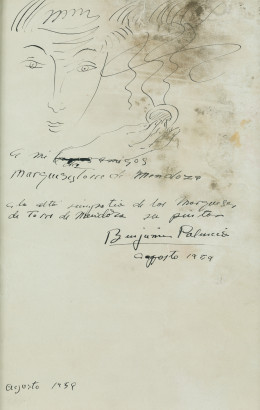 a mis amigos
Marqueses Torre de Mendoza
a la alta simpatia de los Marqueses
de Torre de Mendoza su pintor
Benjamin Palencia
agosto 1959
agosto 1959